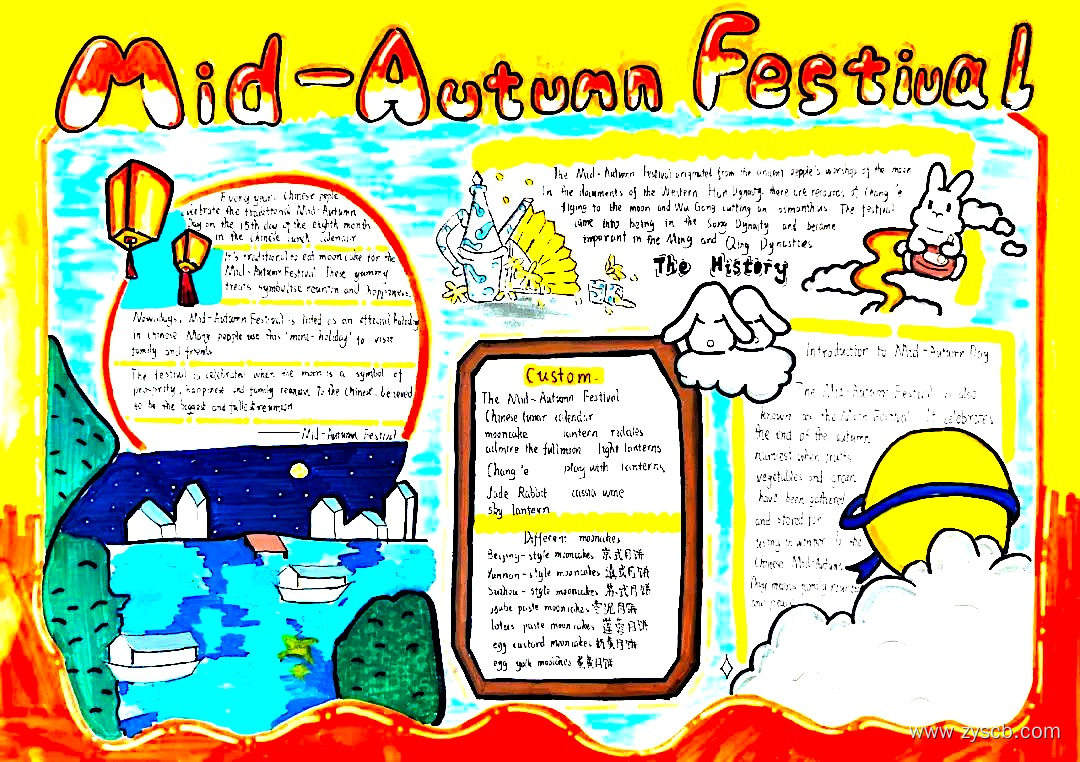 Mid-Autumn Festival
Every year, Chinese pople
celebrate the traditional Mid-Autumn
Day on the 15th day of the eighth month
in the chinese lunch calendar
It's traditional to eat mooncake for the
Mid-Autumn Festival. These yummy
treats symbolise reunion and happiness.
Nowadays, Mid-Autumn Festival is listed as an official holiday
in chinese. Many people use this 'mini-holiday' to visit
family and friends
The festival is celebrated when the moon is a symbol of
prosperity, happiness and family reunion To the Chinese,
to be the biggest and fullest
Mid-Autumn Festival
The Mid-Autumn Festival originated from the ancient people's worship of the moon
In the documents of the Western Han Dynasty, there are records of Chang 'e
flying to the moon and Wu Gang cutting an osmanthus The festival
came into being in the Song Dynasty and became
important in the Ming and Qing Dynasties
The History
Custom.
The Mid-Autumn Festival
Chinese lunar calendar
mooncake lantern
admire the fullmoon light lanterns
Chang 'e play with lanterns
Jade Rabbit cassia wine
sky lantern
Different mooncakes
Beijing-style mooncakes 京式月饼
Yunnan-style mooncakes 滇式月饼
Suzhou-style mooncakes 苏式月饼
jujube paste mooncakes 枣泥月饼
lotus paste mooncakes 莲蓉月饼
egg custard mooncakes 奶黄月饼
egg yolk 蛋黄月饼
Introduction to Mid-Autumn Day
The Mid-Autumn Festival is also
known as the Moon Festival It celebrates
the end of the autumn
harvest when fruits
vegetables and grain
have been gathered
and stored for
the
Chinese Mid-Autumn
Day means family
and
www.zyscb.com